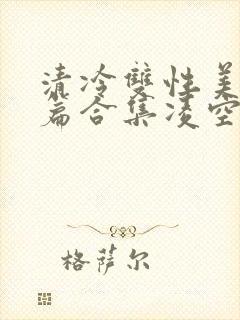 清冷雙性美
篇合集凌空
格萨尔